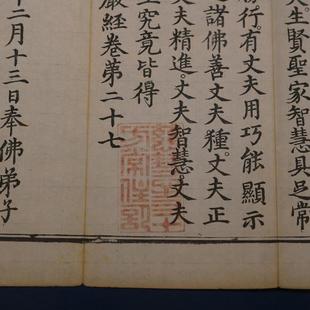 生。賢聖家智慧具足常
勝行。有丈夫用巧能顯示
諸佛善丈夫種。丈夫正
丈夫精進。丈夫智慧。丈夫
究竟皆得
嚴経卷第二十七
十二月十三日奉佛弟子